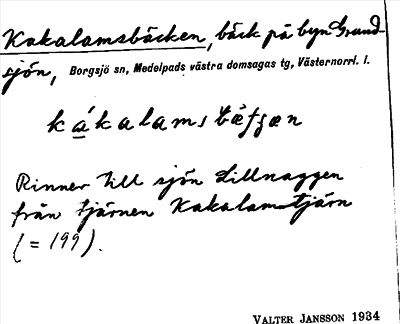 Kakalamsbäcken, bäck på byn Grund-
sjön, Borgsjö sn, Medelpads västra domsagas tg, Västernorrl. l.
Rinner till sjön Lillnaggen
från tjärnen Kakalamstjärn
(= 199).
VALTER JANSSON 1934